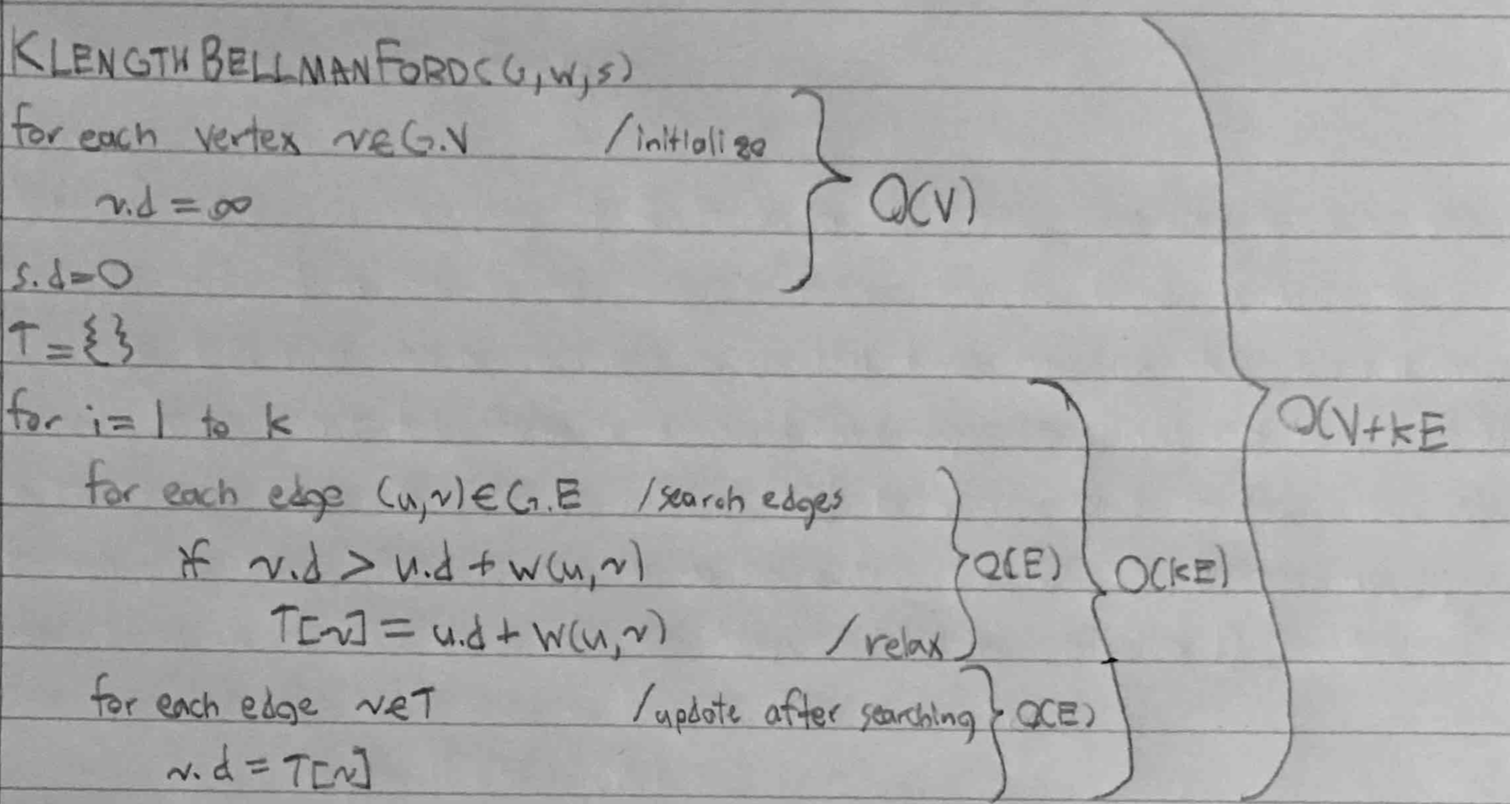 KLENGTHBELLMANFORD(G,w,s)
for each vertex v∈G.V /initialize
v.d = ∞
O(V)
s.d=0
T={}
for i=1 to k
O(V+kE
for each edge (u,v)∈G.E /search edges
if v.d > u.d + w(u,v)
O(E)
O(kE)
T[v] = u.d + w(u,v) /relax
for each edge v∈T /update after searching
O(E)
v.d = T[v]